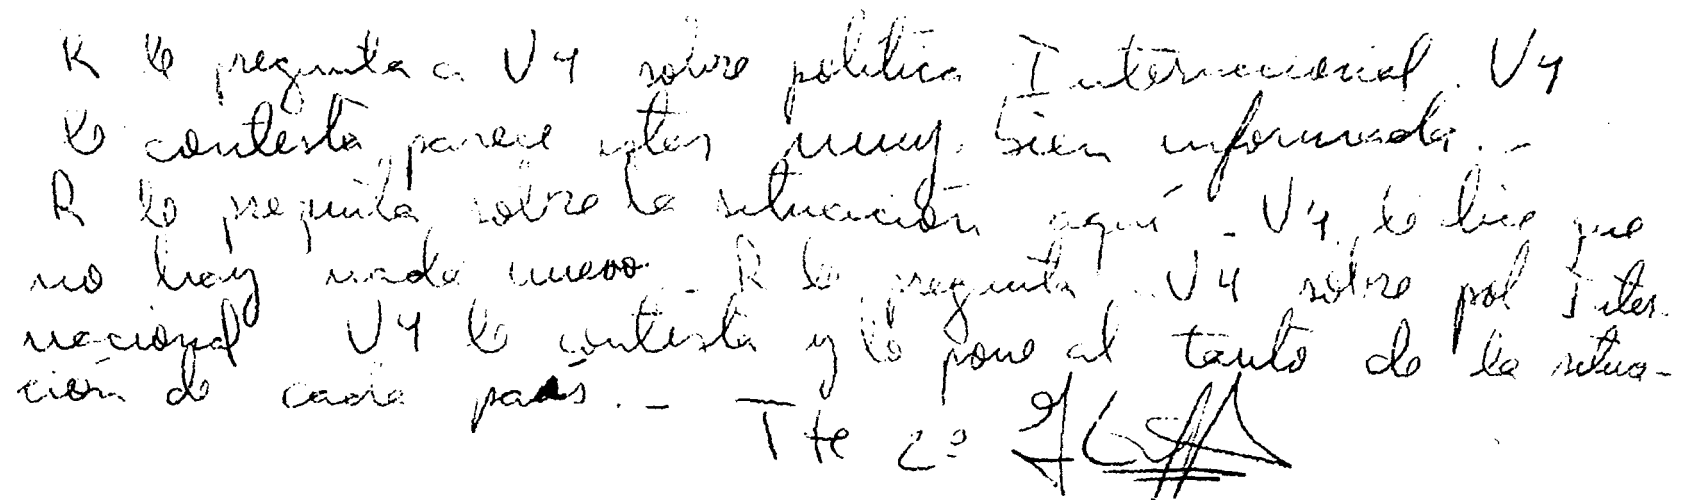 R le pregunta a V4 sobre politica Internacional. V4
le contesta parece estar muy bien informada.-
R le pregunta sobre la situación aquí - V4 le dice que
no hay nada nuevo.- R le pregunta a V4 sobre pol Inter-
nacional V4 le contesta y lo pone al tanto de la situa-
ción de cada país.-
Tte 2º